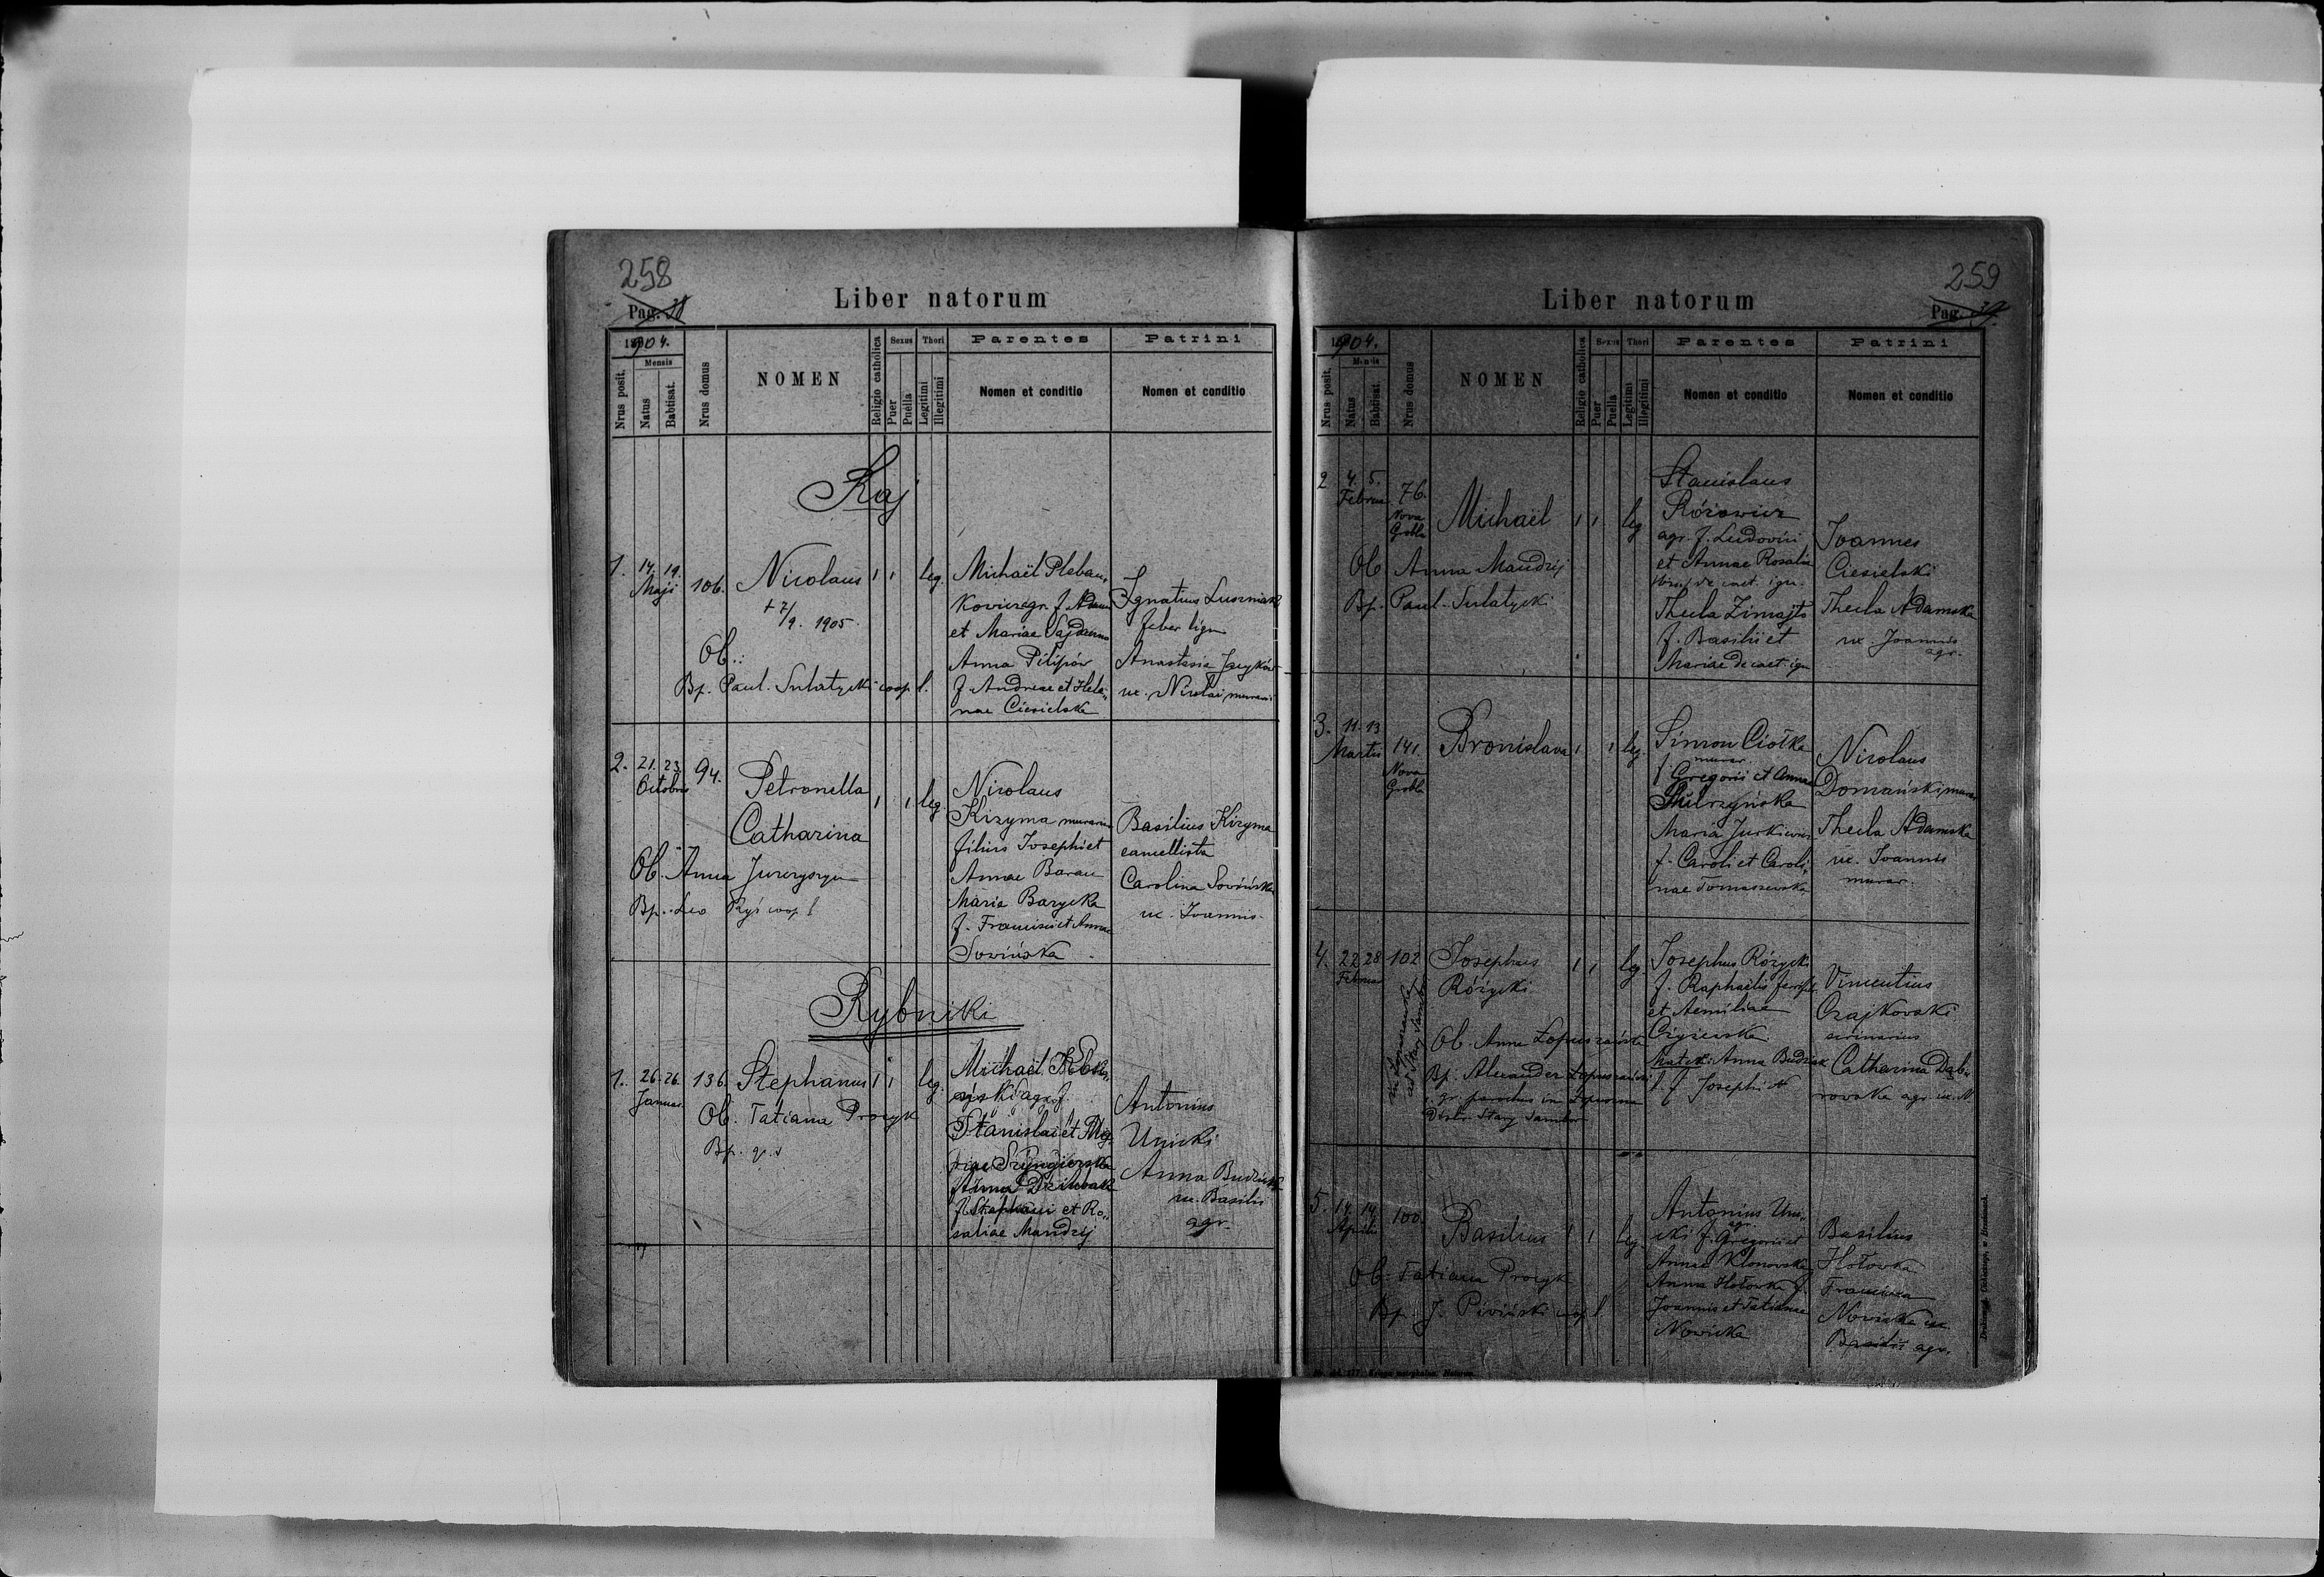 258
Pag. 38
Liber natorum
1904.
Mensis
Nrus posit.
Natus
Babtisat.
Nrus domus
NOMEN
Religio catholica
Sexus
Puer
Puella
Thori
Legitimi
Illegitimi
Parentes
Nomen et conditio
Patrini
Nomen et conditio
Raj
1. 14. 19. Maji 106. Nicolaus 1 1 leg.
+ 7/9. 1905.
Ob.:
Bp. Paul. Sulatycki coop. l.
Michaël Pleban
kovicz agr. f. Adami
et Mariae
Anna Pilipów
f. Andreae et Hele„
nae Ciesielska
Ignatius
faber lign
Anastasia
ux. Nicolai murarii
2. 21. 23. Octobris 94. Petronella
Catharina 1 1 leg.
Ob. Anna
Bp. Leo Ryś coop. l
Nicolaus
Kizyma murarius
filius Josephi et
Annae Baran
Maria Barycka
f. Francisci et Annae
Sowińska
Basilius Kizyma
Carolina Sowińska
ux. Joannis
Rybniki
1. 26. 26. Januar. 136. Stephanus 1 1 leg.
Ob. Tatiana Procyk
Bp. q. s
Michaël
agr. f.
Stanislai et
Anna
f. Stephani et Ro„
saliae Mandzij
Antonius
Unicki
Anna
ux. Basilii
agr.
259
Pag. 39.
Liber natorum
1904.
Mensis
Nrus posit.
Natus
Babtisat.
Nrus domus
NOMEN
Religio catholica
Sexus
Puer
Puella
Thori
Legitimi
Illegitimi
Parentes
Nomen et conditio
Patrini
Nomen et conditio
2 4. 5. Februar 76. Nova Grobla Michaël 1 1 leg
Ob Anna Mandzij
Bp. Paul. Sulatycki
Stanislaus
Rózowicz
agr. f. Ludovici
et Annae Rosalia
de caet. ign.
Thecla
f. Basilii et
Mariae de caet. ign
Joannes
Ciesielski
Thecla Adamska
ux. Joannis
agr.
3. 11. 13 Martii 141 Nova Grobla Bronislava 1 1 leg.
Simon Ciołka
murar.
f. Gregorii et Annae
Maria Jurkiewicz
f. Caroli et Caroli„
nae Tomaszewska
Nicolaus
Domański murar
Thecla Adamska
ux. Joannis
murar.
4. 22 28 Februar 102 Josephus
Różycki 1 1 leg
ad Stary Sambor
Ob. Anna
Bp. Alexander
gr. parochus in
Distr. Stary Sambor
Josephus Różycki
f. Raphaelis
et Aemiliae
Matek: Anna
f. Josephi et
Vincentius
Czajkovski
Catharina Dąb„
rovska agr. ux. N
5. 14. 14. Aprili 100. Basilius 1 1 leg.
Ob. Tatiana Procyk
Bp. J. Piwiński coop. l.
Antonius Uni„
agr.
cki f. Gregorii et
Annae Klonovska
Anna Hołowka f.
Joannis et Tatianae
Nowicka
Basilius
Hołowka
Francisca
Nowicka ux.
Basilii agr.